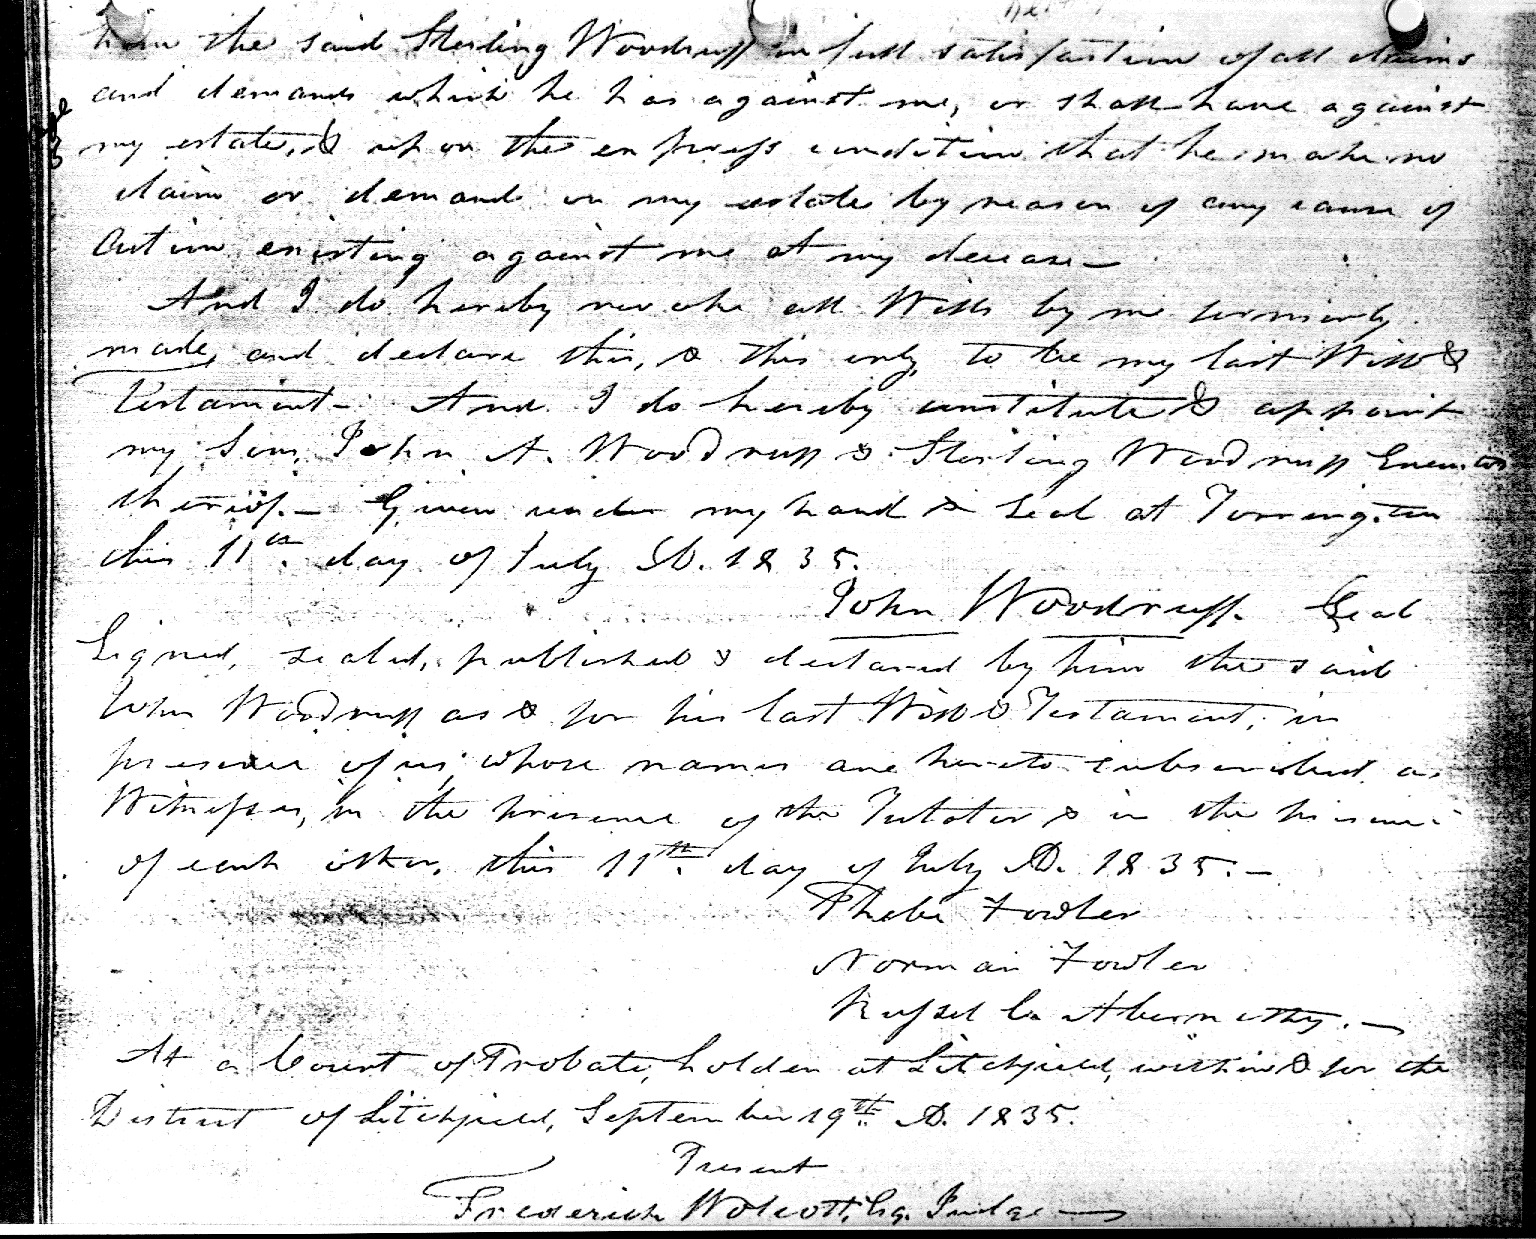 him the said Sterling Woodruff in full satisfaction of all claims
and demands which he has against me, or shall have against
my estate, & upon the express condition that he make no
claim or demand on my estate by reason of any cause of
Action existing against me at my decease —
And I do hereby revoke all Wills by me formerly
made, and declare this, & this only, to be my last Will &
Testament – And I do hereby constitute & appoint
my Sons, John A. Woodruff & Sterling Woodruff Executors
thereof. — Given under my hand & seal at Torrington
this 11th day of July AD. 1835.
John Woodruff. Seal
Signed, sealed, published & declared by him the said
John Woodruff as & for his last Will & Testament, in
presence of us, whose names are hereto subscribed as
Witnesses, in the presence of the Testator & in the presence
of each other, this 11th day of July AD. 1835. —
Phebe Fowler
Norman Fowler
Russel C. Abernethy. —
At a Court of Probate, holden at Litchfield, within & for the
District of Litchfield, September 19th AD. 1835.
Present
Frederick Wolcott, Esq. Judge —